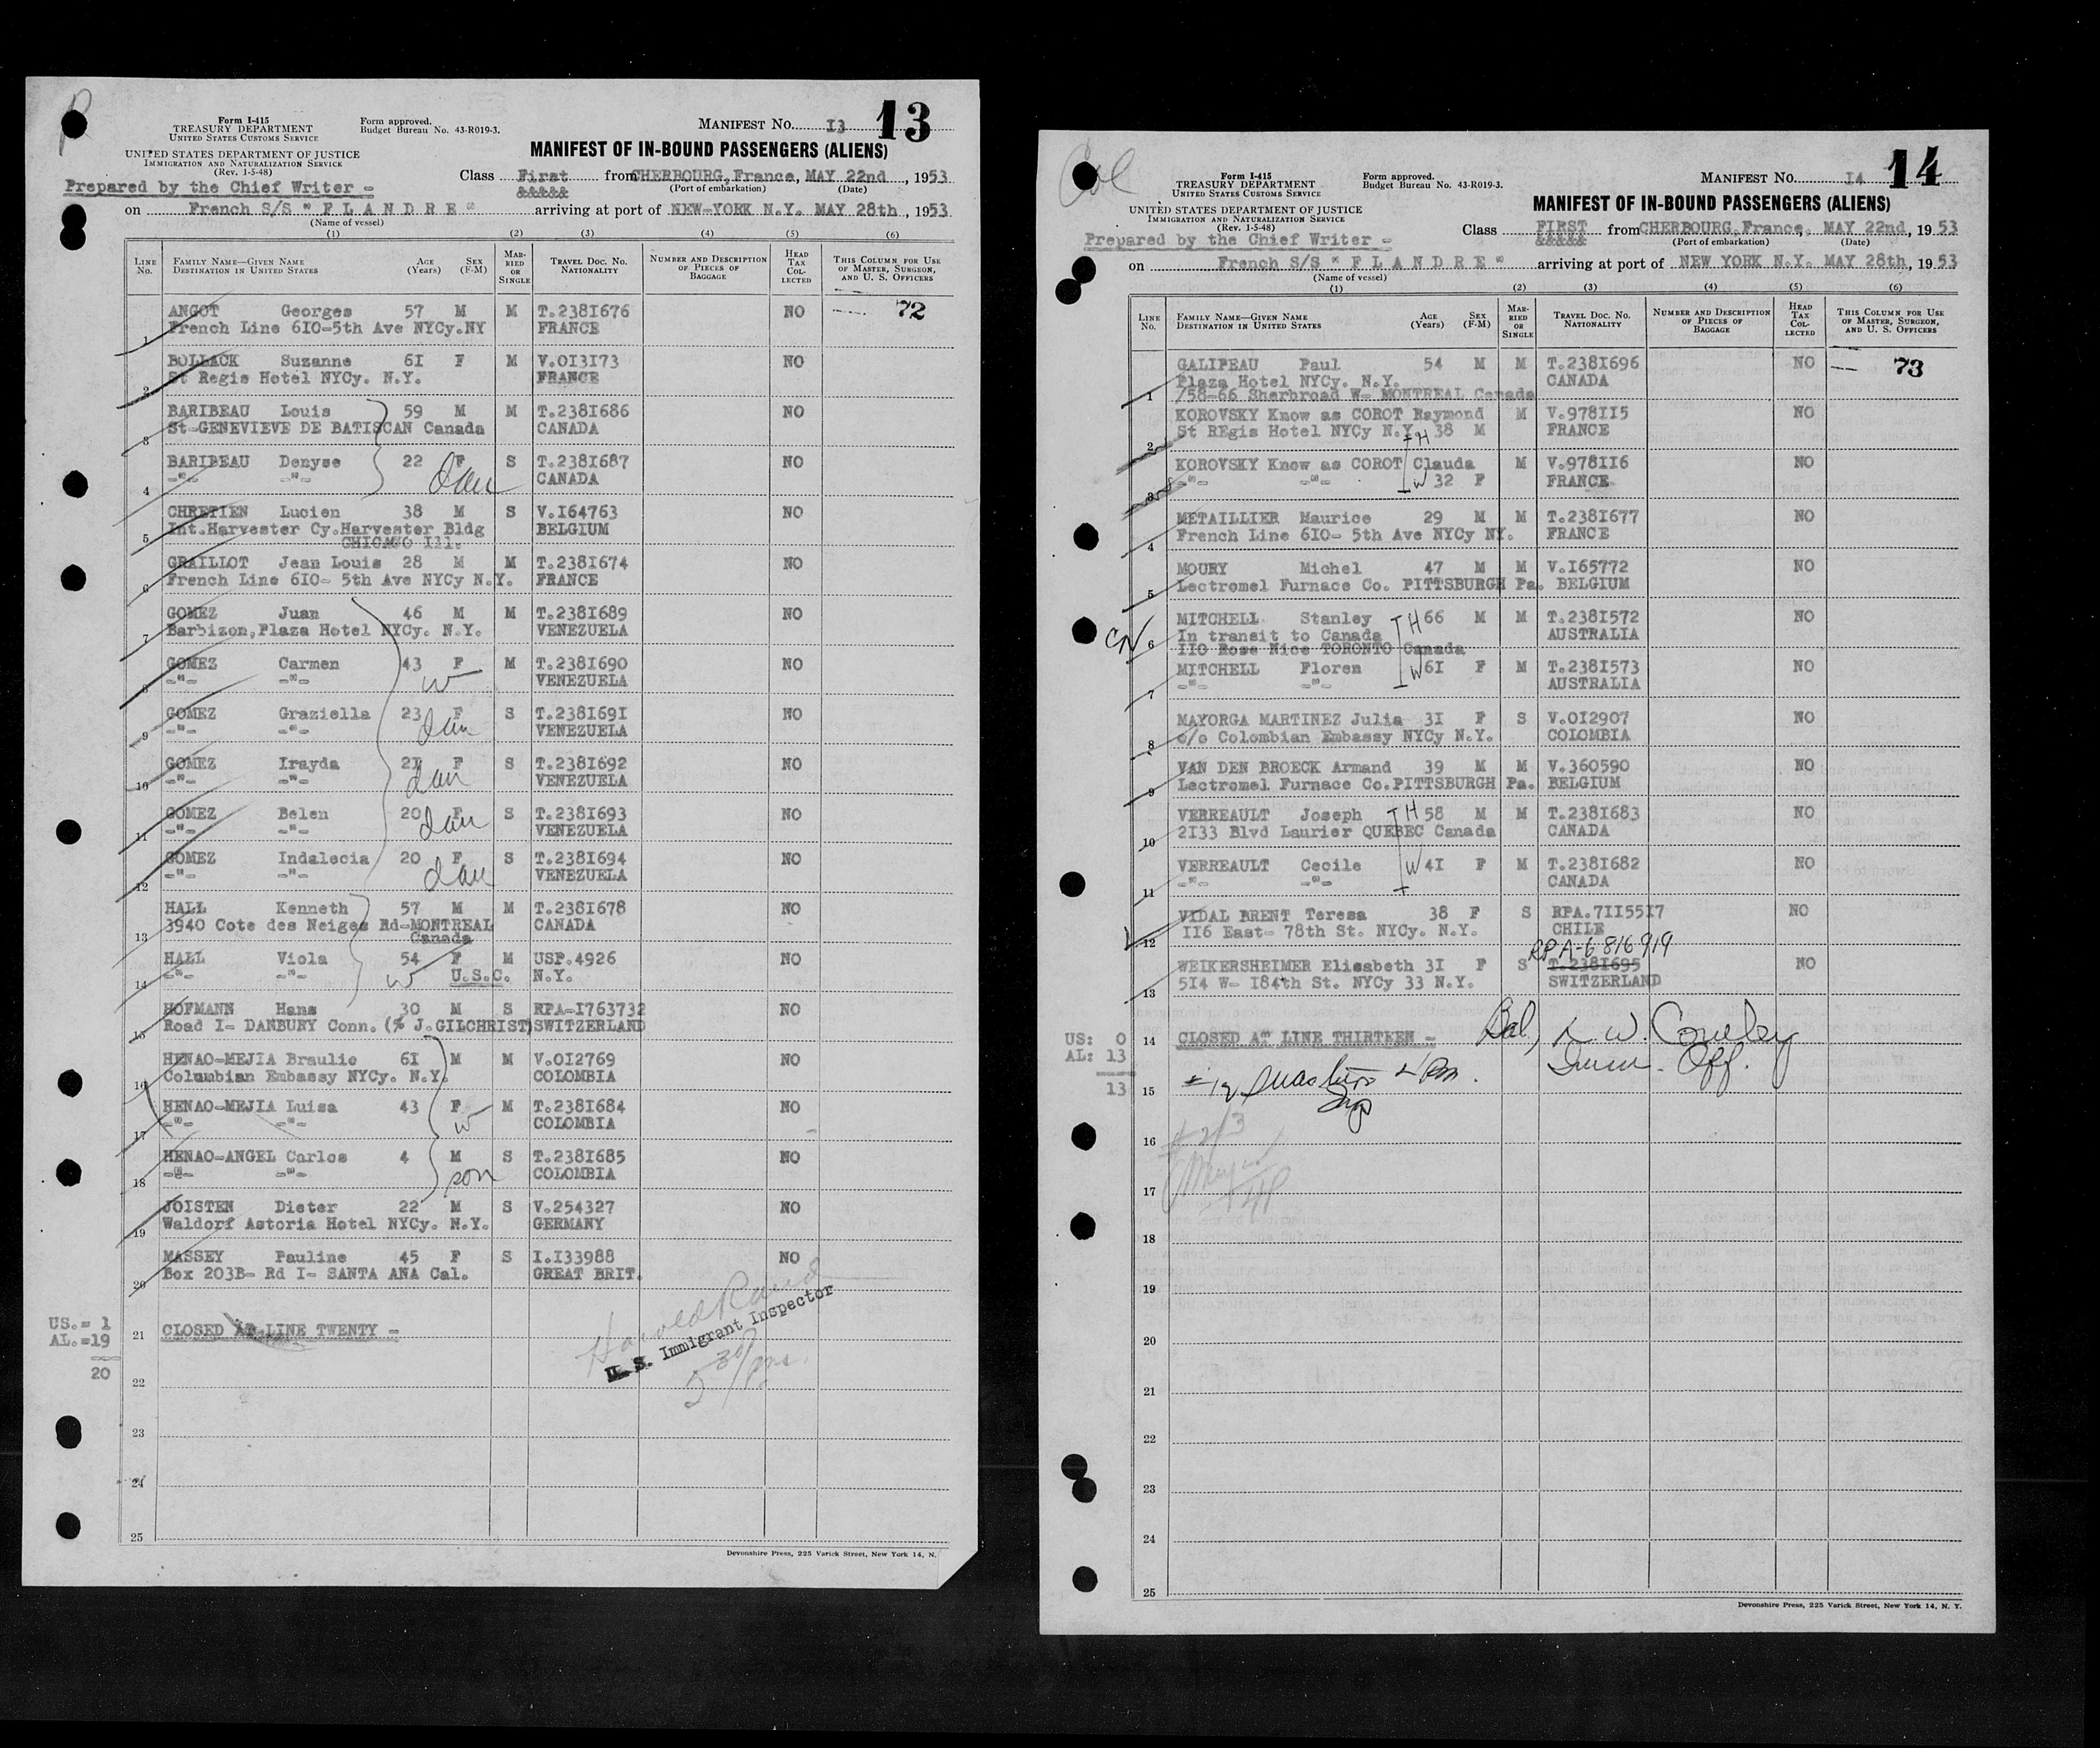 Form I-415
TREASURY DEPARTMENT
UNITED STATES CUSTOMS SERVICE
Form approved.
Budget Bureau No. 43-R019-3.
MANIFEST NO. I3 13
UNITED STATES DEPARTMENT OF JUSTICE
IMMIGRATION AND NATURALIZATION SERVICE
(Rev. 1-5-48)
MANIFEST OF IN-BOUND PASSENGERS (ALIENS)
Prepared by the Chief Writer -
Class First from CHERBOURG, France, MAY 22nd, 1953
&&&&& (Port of embarkation) (Date)
on French S/S " F L A N D R E " arriving at port of NEW-YORK N.Y. MAY 28th, 1953
(Name of vessel)
(1) (2) (3) (4) (5) (6)
LINE No. FAMILY NAME—GIVEN NAME DESTINATION IN UNITED STATES AGE (Years) SEX (F-M) MARRIED OR SINGLE TRAVEL DOC. NO. NATIONALITY NUMBER AND DESCRIPTION OF PIECES OF BAGGAGE HEAD TAX COLLECTED THIS COLUMN FOR USE OF MASTER, SURGEON, AND U. S. OFFICERS
1 ANGOT Georges 57 M M T.238I676 NO 72
French Line 6I0-5th Ave NYCy.NY FRANCE
2 BOLLACK Suzanne 6I F M V.0I3I73 NO
St Regis Hotel NYCy. N.Y. FRANCE
3 BARIBEAU Louis 59 M M T.238I686 NO
St-GENEVIEVE DE BATISCAN Canada CANADA
4 BARIBEAU Denyse 22 F S T.238I687 NO
-"- -"- dau CANADA
5 CHRETIEN Lucien 38 M S V.I64763 NO
Int.Harvester Cy.Harvester Bldg BELGIUM
CHICAGO Ill.
6 GRAILLOT Jean Louis 28 M M T.238I674 NO
French Line 6I0- 5th Ave NYCy N.Y. FRANCE
7 GOMEZ Juan 46 M M T.238I689 NO
Barbizon,Plaza Hotel NYCy. N.Y. VENEZUELA
8 GOMEZ Carmen 43 F M T.238I690 NO
-"- -"- w VENEZUELA
9 GOMEZ Graziella 23 F S T.238I69I NO
-"- -"- dau VENEZUELA
10 GOMEZ Irayda 2I F S T.238I692 NO
-"- -"- dau VENEZUELA
11 GOMEZ Belen 20 F S T.238I693 NO
-"- -"- dau VENEZUELA
12 GOMEZ Indalecia 20 F S T.238I694 NO
-"- -"- dau VENEZUELA
13 HALL Kenneth 57 M M T.238I678 NO
3940 Cote des Neiges Rd-MONTREAL CANADA
Canada
14 HALL Viola 54 F M USP.4926 NO
-"- -"- w U.S.C. N.Y.
15 HOFMANN Hans 30 M S RPA-I763732 NO
Road I- DANBURY Conn. (% J.GILCHRIST) SWITZERLAND
16 HENAO-MEJIA Braulio 6I M M V.0I2769 NO
Columbian Embassy NYCy. N.Y. COLOMBIA
17 HENAO-MEJIA Luisa 43 F M T.238I684 NO
-"- -"- w COLOMBIA
18 HENAO-ANGEL Carlos 4 M S T.238I685 NO
-"- -"- son COLOMBIA
19 JOISTEN Dieter 22 M S V.254327 NO
Waldorf Astoria Hotel NYCy. N.Y. GERMANY
20 MASSEY Pauline 45 F S I.I33988 NO
Box 203B- Rd I- SANTA ANA Cal. GREAT BRIT.
US.= 1
AL.=19
20
21 CLOSED AT LINE TWENTY -
Harold
U. S. Immigrant Inspector
5 30/pm.
22
23
24
25
Devonshire Press, 225 Varick Street, New York 14, N.
Col
Form I-415
TREASURY DEPARTMENT
UNITED STATES CUSTOMS SERVICE
Form approved.
Budget Bureau No. 43-R019-3.
MANIFEST NO. I4 14
UNITED STATES DEPARTMENT OF JUSTICE
IMMIGRATION AND NATURALIZATION SERVICE
(Rev. 1-5-48)
MANIFEST OF IN-BOUND PASSENGERS (ALIENS)
Prepared by the Chief Writer -
Class FIRST from CHERBOURG, France, MAY 22nd, 1953
&&&&& (Port of embarkation) (Date)
on French S/S " F L A N D R E " arriving at port of NEW YORK N.Y. MAY 28th, 1953
(Name of vessel)
(1) (2) (3) (4) (5) (6)
LINE No. FAMILY NAME—GIVEN NAME DESTINATION IN UNITED STATES AGE (Years) SEX (F-M) MARRIED OR SINGLE TRAVEL DOC. NO. NATIONALITY NUMBER AND DESCRIPTION OF PIECES OF BAGGAGE HEAD TAX COLLECTED THIS COLUMN FOR USE OF MASTER, SURGEON, AND U. S. OFFICERS
1 GALIPEAU Paul 54 M M T.238I696 NO 73
Plaza Hotel NYCy. N.Y. CANADA
/58-66 Sherbroad W- MONTREAL Canada
2 KOROVSKY Know as COROT Raymond M V.978II5 NO
St REgis Hotel NYCy N.Y. 38 M FRANCE
H
3 KOROVSKY Know as COROT Clauda M V.978II6 NO
-"- -"- W 32 F FRANCE
4 METAILLIER Maurice 29 M M T.238I677 NO
French Line 6I0- 5th Ave NYCy NY. FRANCE
5 MOURY Michel 47 M M V.I65772 NO
Lectromel Furnace Co. PITTSBURGH Pa. BELGIUM
6 MITCHELL Stanley H 66 M M T.238I572 NO
In transit to Canada AUSTRALIA
II0 Rose Nice TORONTO Canada
7 MITCHELL Floren W 6I F M T.238I573 NO
-"- -"- AUSTRALIA
8 MAYORGA MARTINEZ Julia 3I F S V.0I2907 NO
c/o Colombian Embassy NYCy N.Y. COLOMBIA
9 VAN DEN BROECK Armand 39 M M V.360590 NO
Lectromel Furnace Co.PITTSBURGH Pa. BELGIUM
10 VERREAULT Joseph H 58 M M T.238I683 NO
2I33 Blvd Laurier QUEBEC Canada CANADA
11 VERREAULT Cecile W 4I F M T.238I682 NO
-"- -"- CANADA
12 VIDAL BRENT Teresa 38 F S RPA.7II55I7 NO
II6 East- 78th St. NYCy. N.Y. CHILE
RPA-6 816 919
13 WEIKERSHEIMER Elisabeth 3I F S T.238I695 NO
5I4 W- I84th St. NYCy 33 N.Y. SWITZERLAND
US: 0
AL: 13
13
14 CLOSED AT LINE THIRTEEN -
Imm. Off.
15
16
17
18
19
20
21
22
23
24
25
Devonshire Press, 225 Varick Street, New York 14, N. Y.